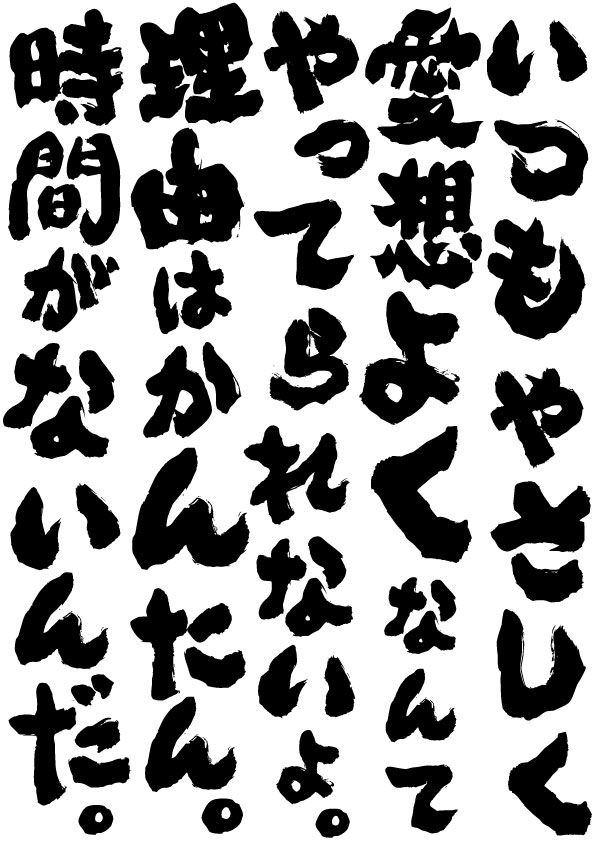 いつもやさしく
霊想よくなんて
やってられないよ。
理由はかんたん。
時間がないんだ。